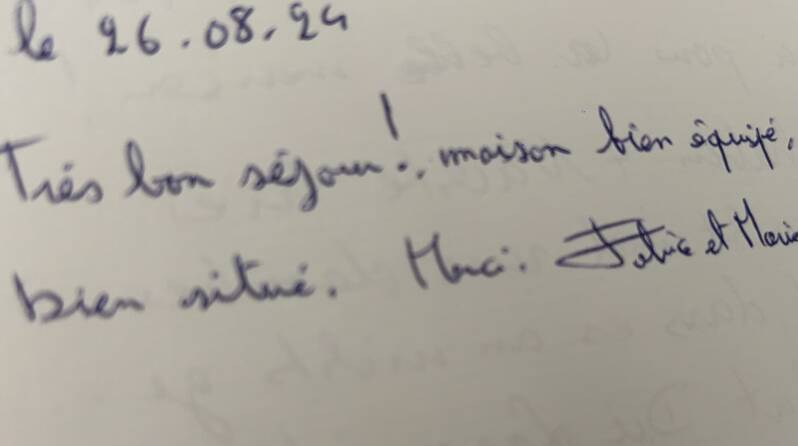 le 26.08.24
Très bon séjour!, maison bien équipé,
bien situé. Merci. Fabrice et Marie